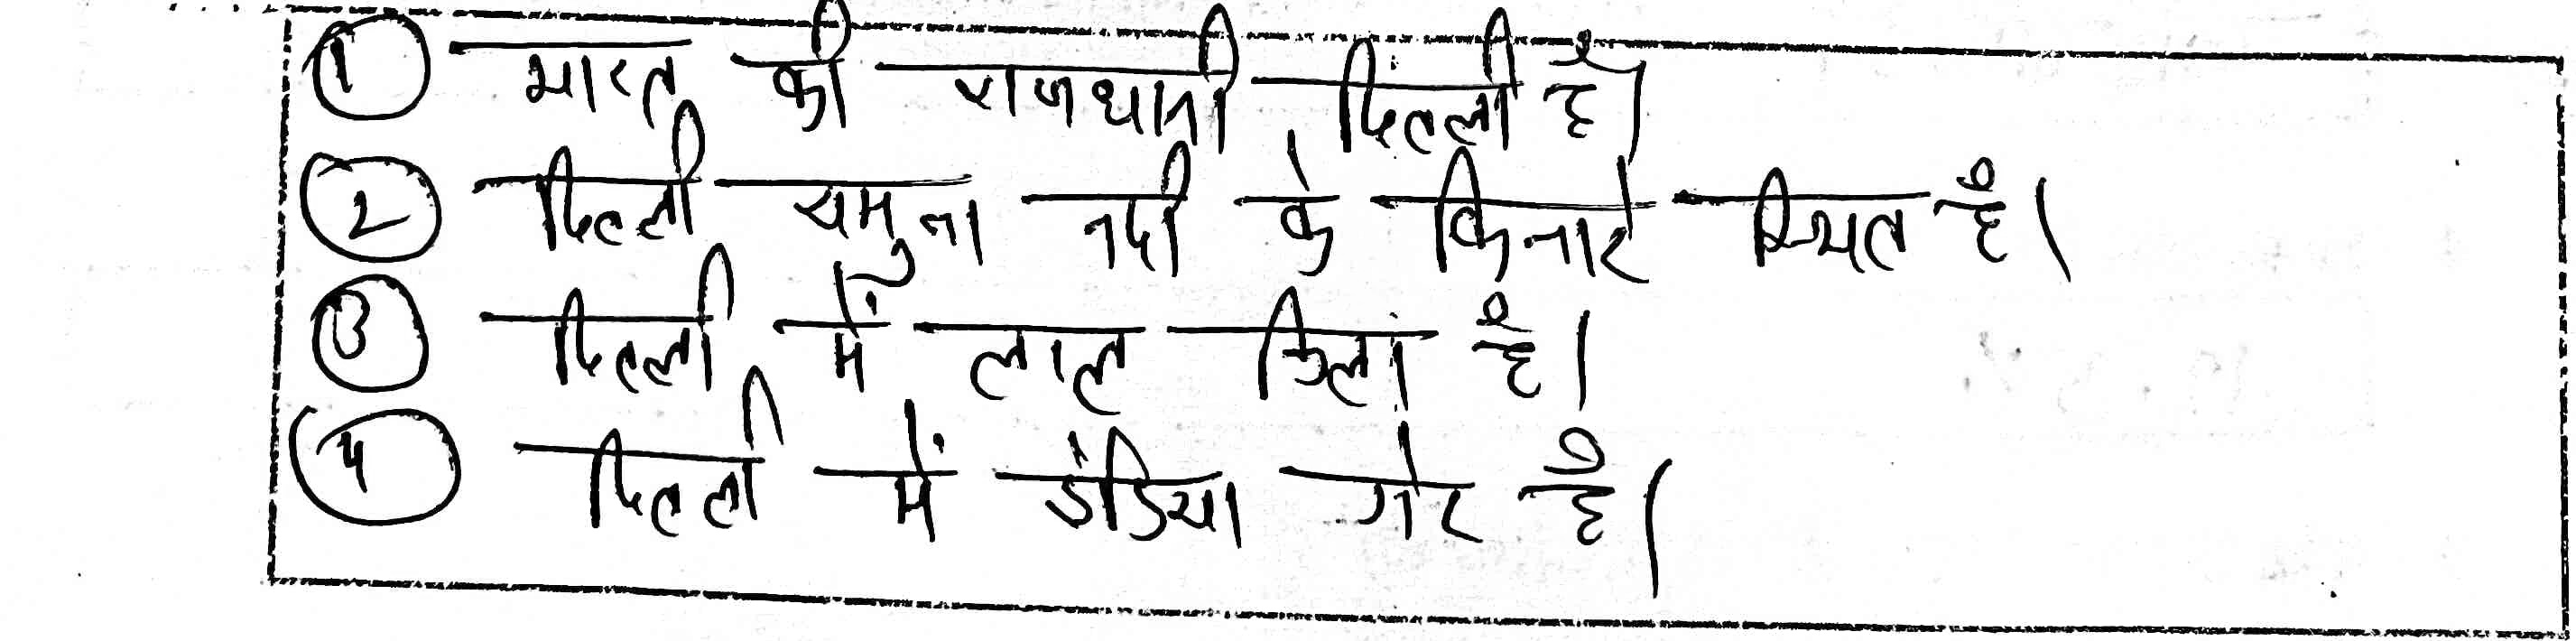 ① भारत की राजधानी दिल्ली है।
② दिल्ली यमुना नदी के किनारे स्थित है।
③ दिल्ली में लाल किला है।
④ दिल्ली में इंडिया गेट है।